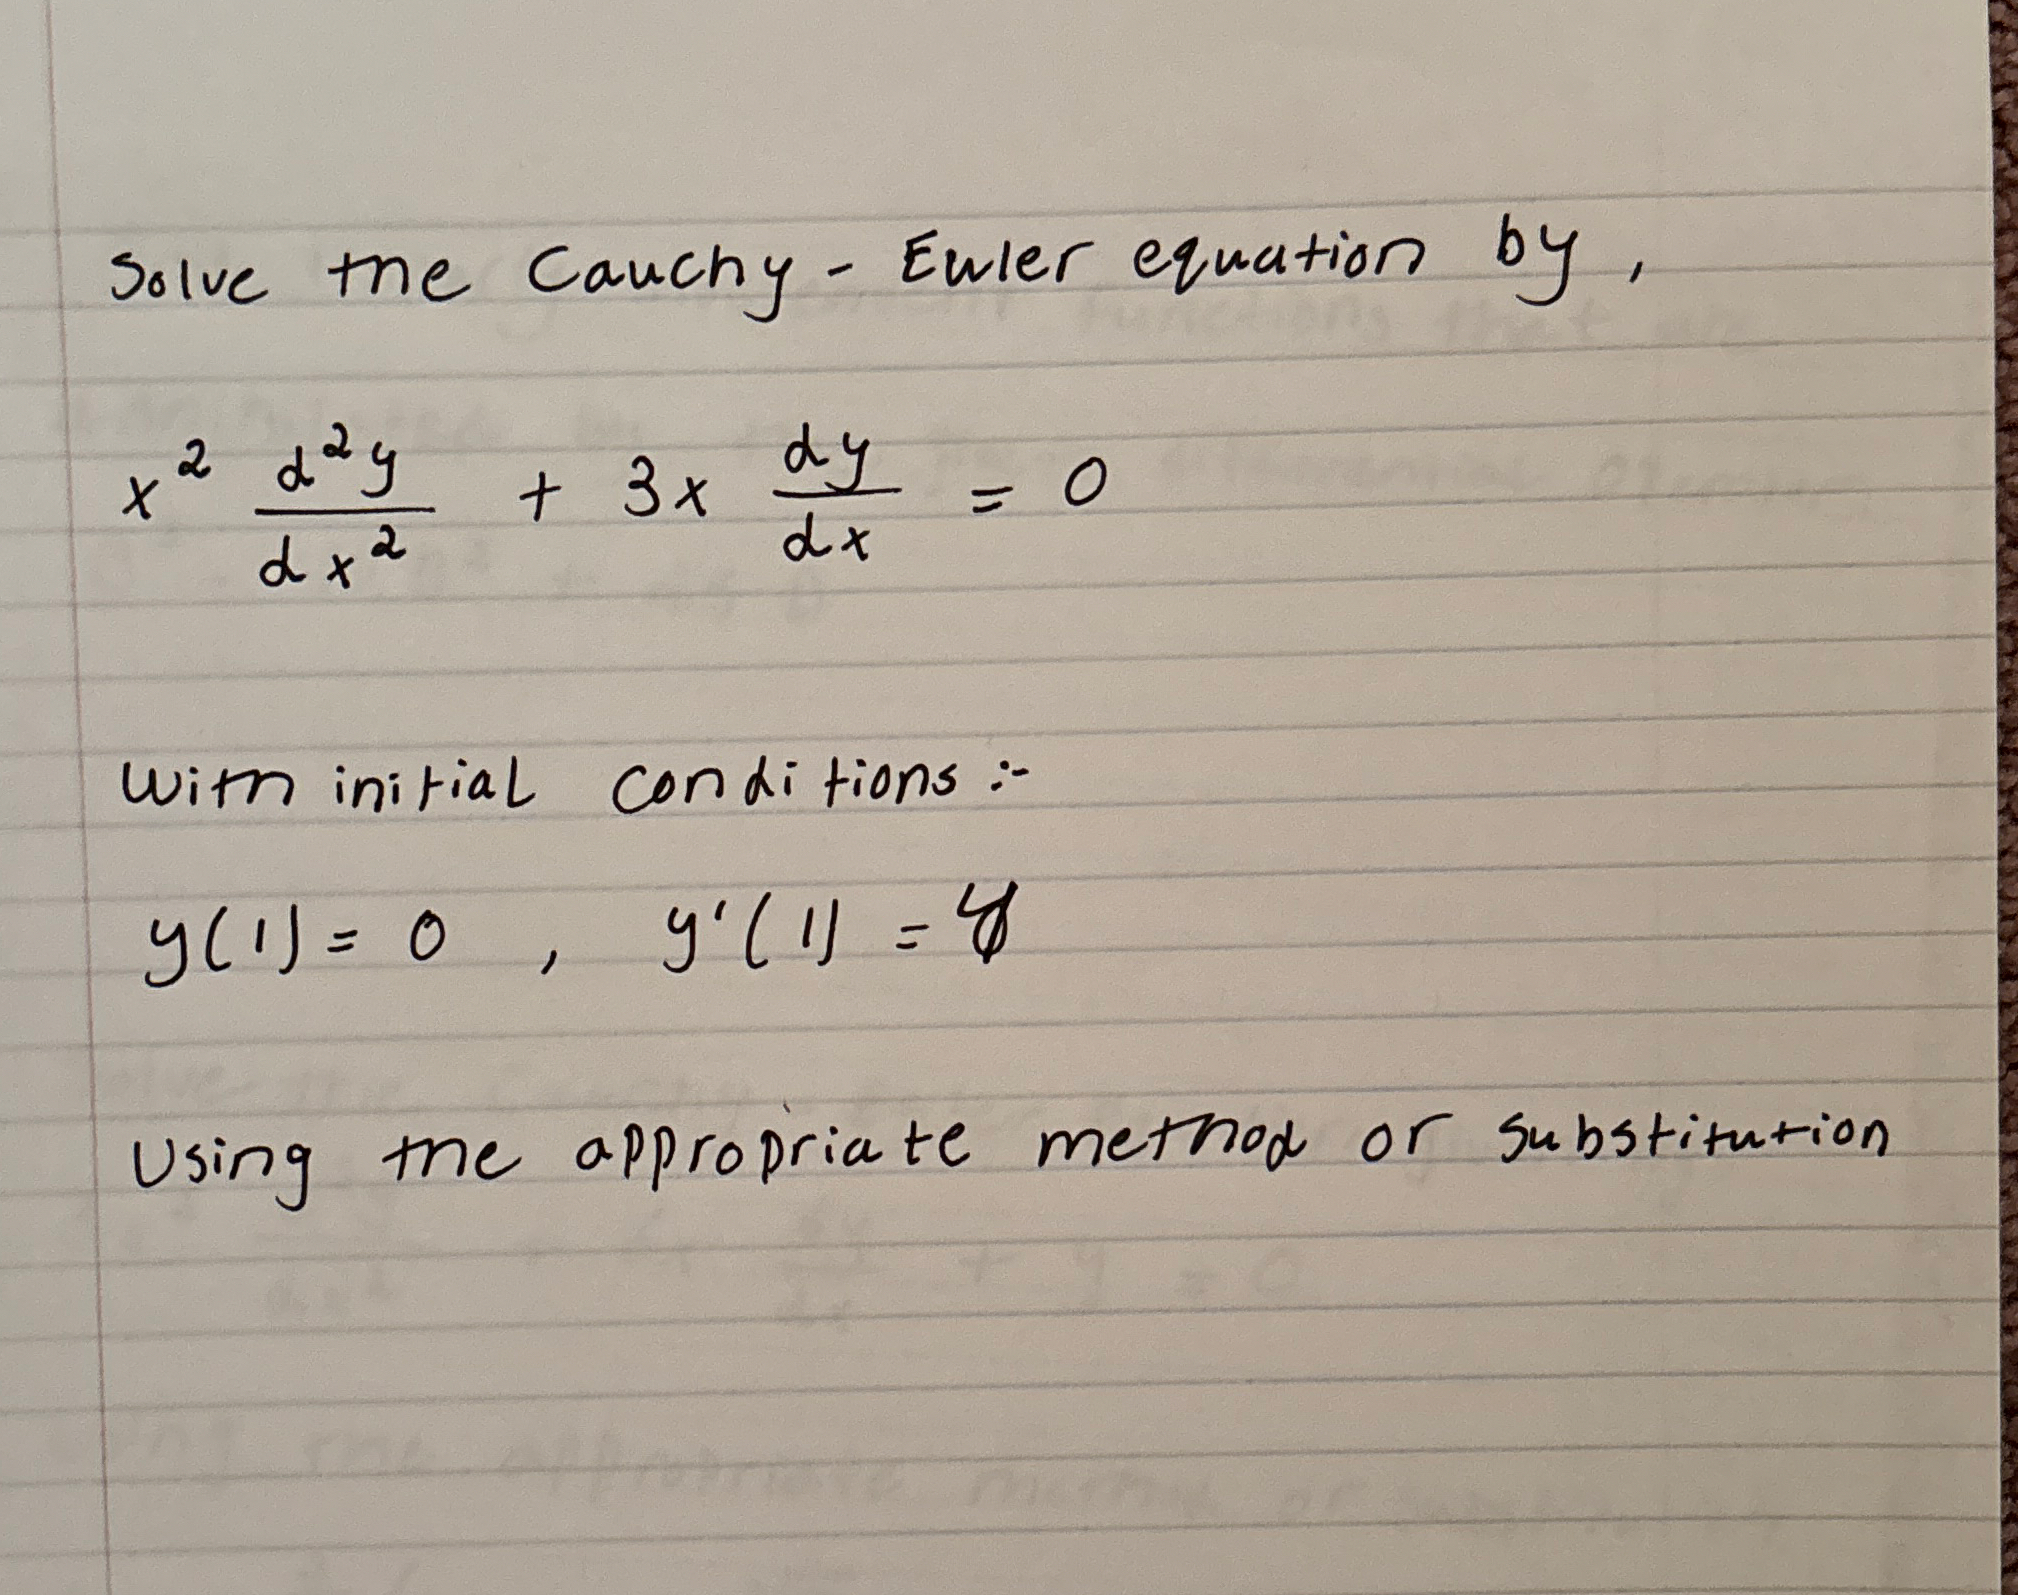 Solve the Cauchy - Euler equation by,
x² d²y/dx² + 3x dy/dx = 0
With initial conditions :-
y(1) = 0 , y'(1) =
Using the appropriate method or substitution